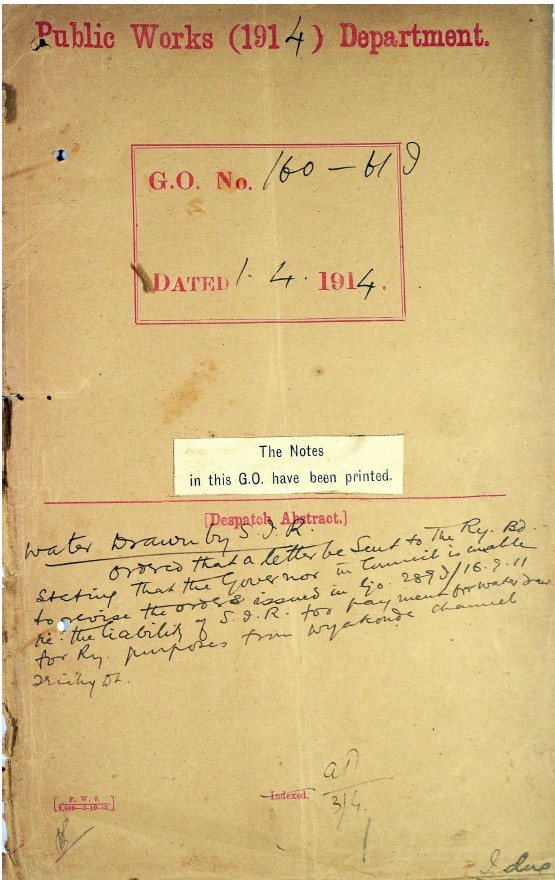 Public Works (1914) Department.
G.O. No. 160-61 I
DATED 1. 4. 1914.
The Notes
in this G.O. have been printed.
[Despatch Abstract.]
Water Drawn by S.I.R.
Ordered that a letter be sent to the Ry. Bd
stating that the Governor in Council is unable
to revise the orders issued in G.o. 289 I/16.9.11
re: the liability of S.I.R. for payment for water draw
for Ry. purposes from Uyakondan channel
Trichy Dt.
Indexed.
3/4
[P. W. 9.
2,000—2-10-12]
Index